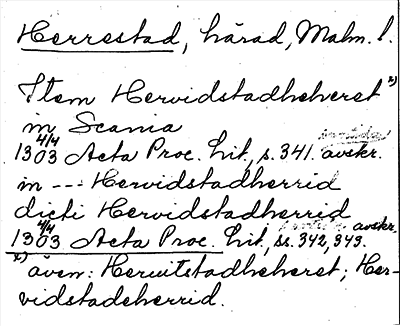 Herrestad, härad, Malm. l.
Item Hervidstadheheret x)
in Scania
13 4/4 03 Acta Proc. lit, s. 341. avskr.
in --- Hervidstadherrid
dicti Hervidstadherrid
13 4/4 03 Acta Proc. lit, ss. 342, 343. avskr.
x) även: Herwitstadheheret; Her-
vidstadeherrid.